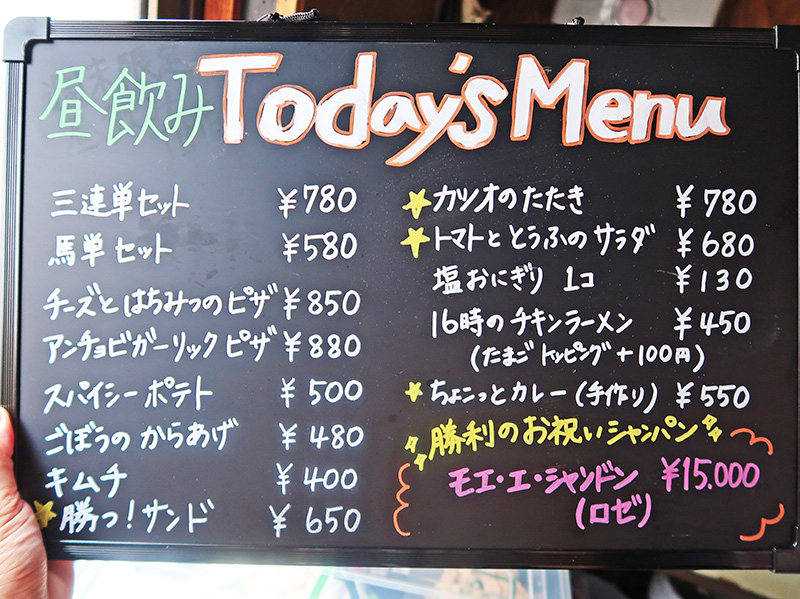 昼飲み Today's Menu
三連単セット ¥780
馬単セット ¥580
チーズとはちみつのピザ ¥850
アンチョビガーリックピザ ¥880
スパイシーポテト ¥500
ごぼうのからあげ ¥480
キムチ ¥400
勝つ!サンド ¥650
カツオのたたき ¥780
トマトととうふのサラダ ¥680
塩おにぎり 1コ ¥130
16時のチキンラーメン ¥450
(たまごトッピング+100円)
ちょこっとカレー(手作り) ¥550
勝利のお祝いシャンパン
モエ・エ・シャンドン ¥15.000
(ロゼ)